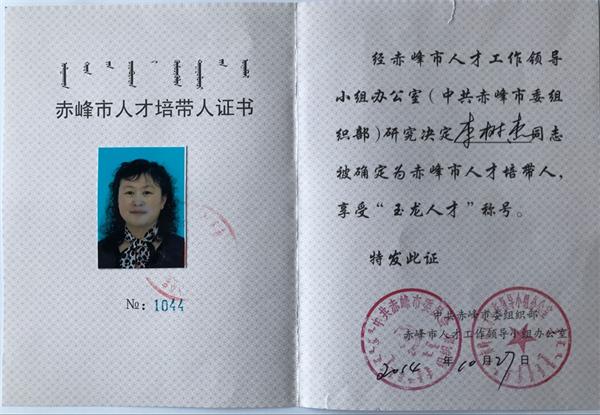 赤峰市人才培带人证书
№: 1044
经赤峰市人才工作领导
小组办公室（中共赤峰市委组
织部）研究决定李树杰同志
被确定为赤峰市人才培带人，
享受“玉龙人才”称号。
特发此证
中共赤峰市委组织部
赤峰市人才工作领导小组办公室
2014年10月27日